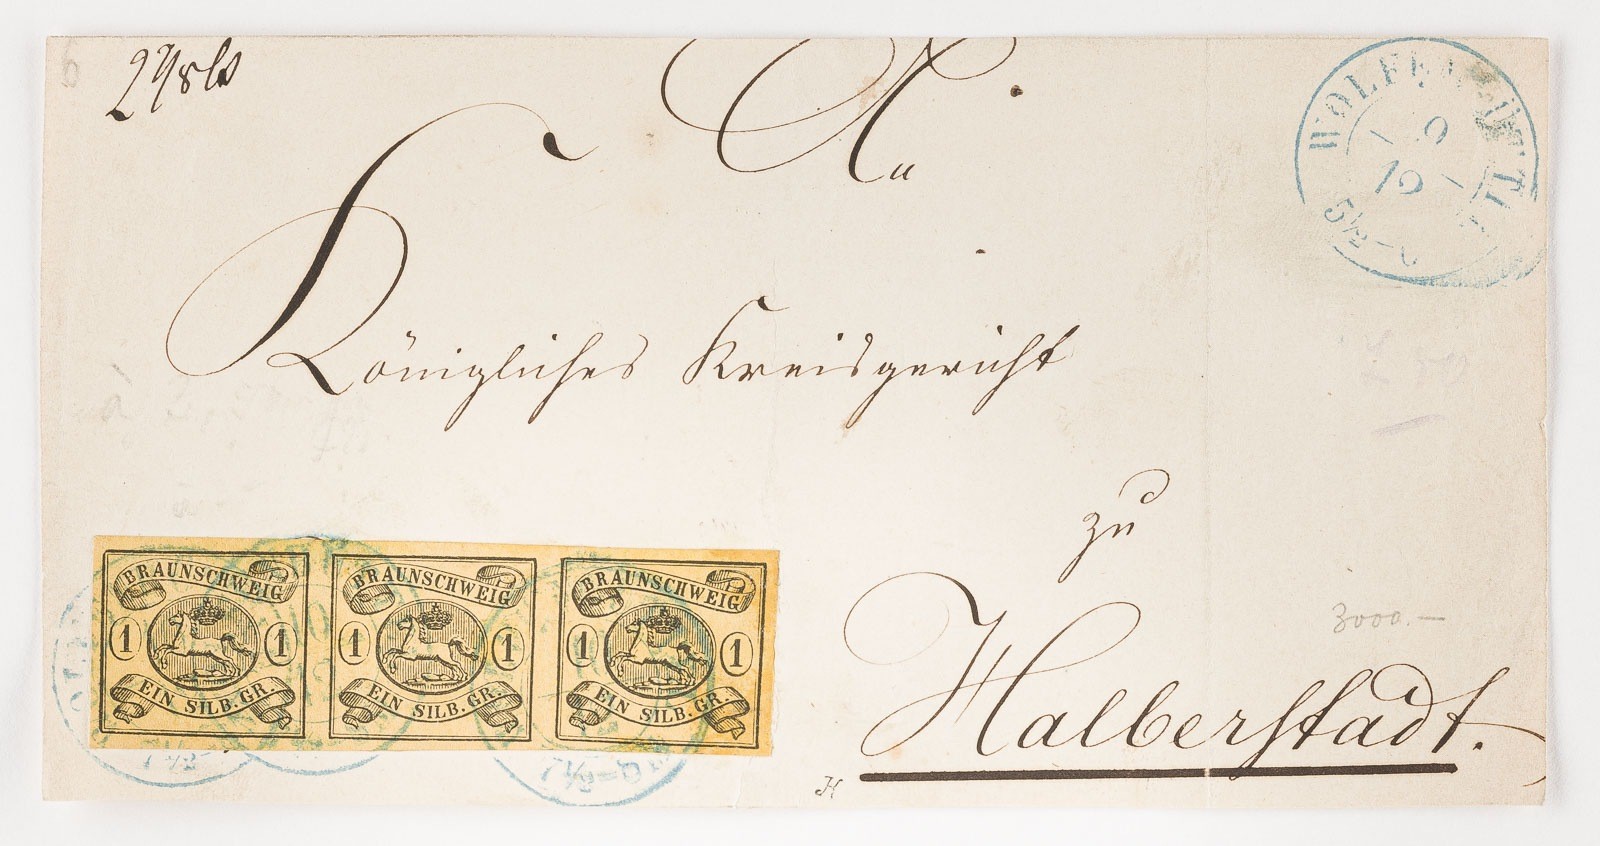 An
WOLFENBÜTTEL
9
12
5½
Königliches Kreisgericht
zu
Halberstadt.
3000.—
BRAUNSCHWEIG BRAUNSCHWEIG BRAUNSCHWEIG
1 1 1 1 1 1
EIN SILB. GR. EIN SILB. GR. EIN SILB. GR.
7½ 7½